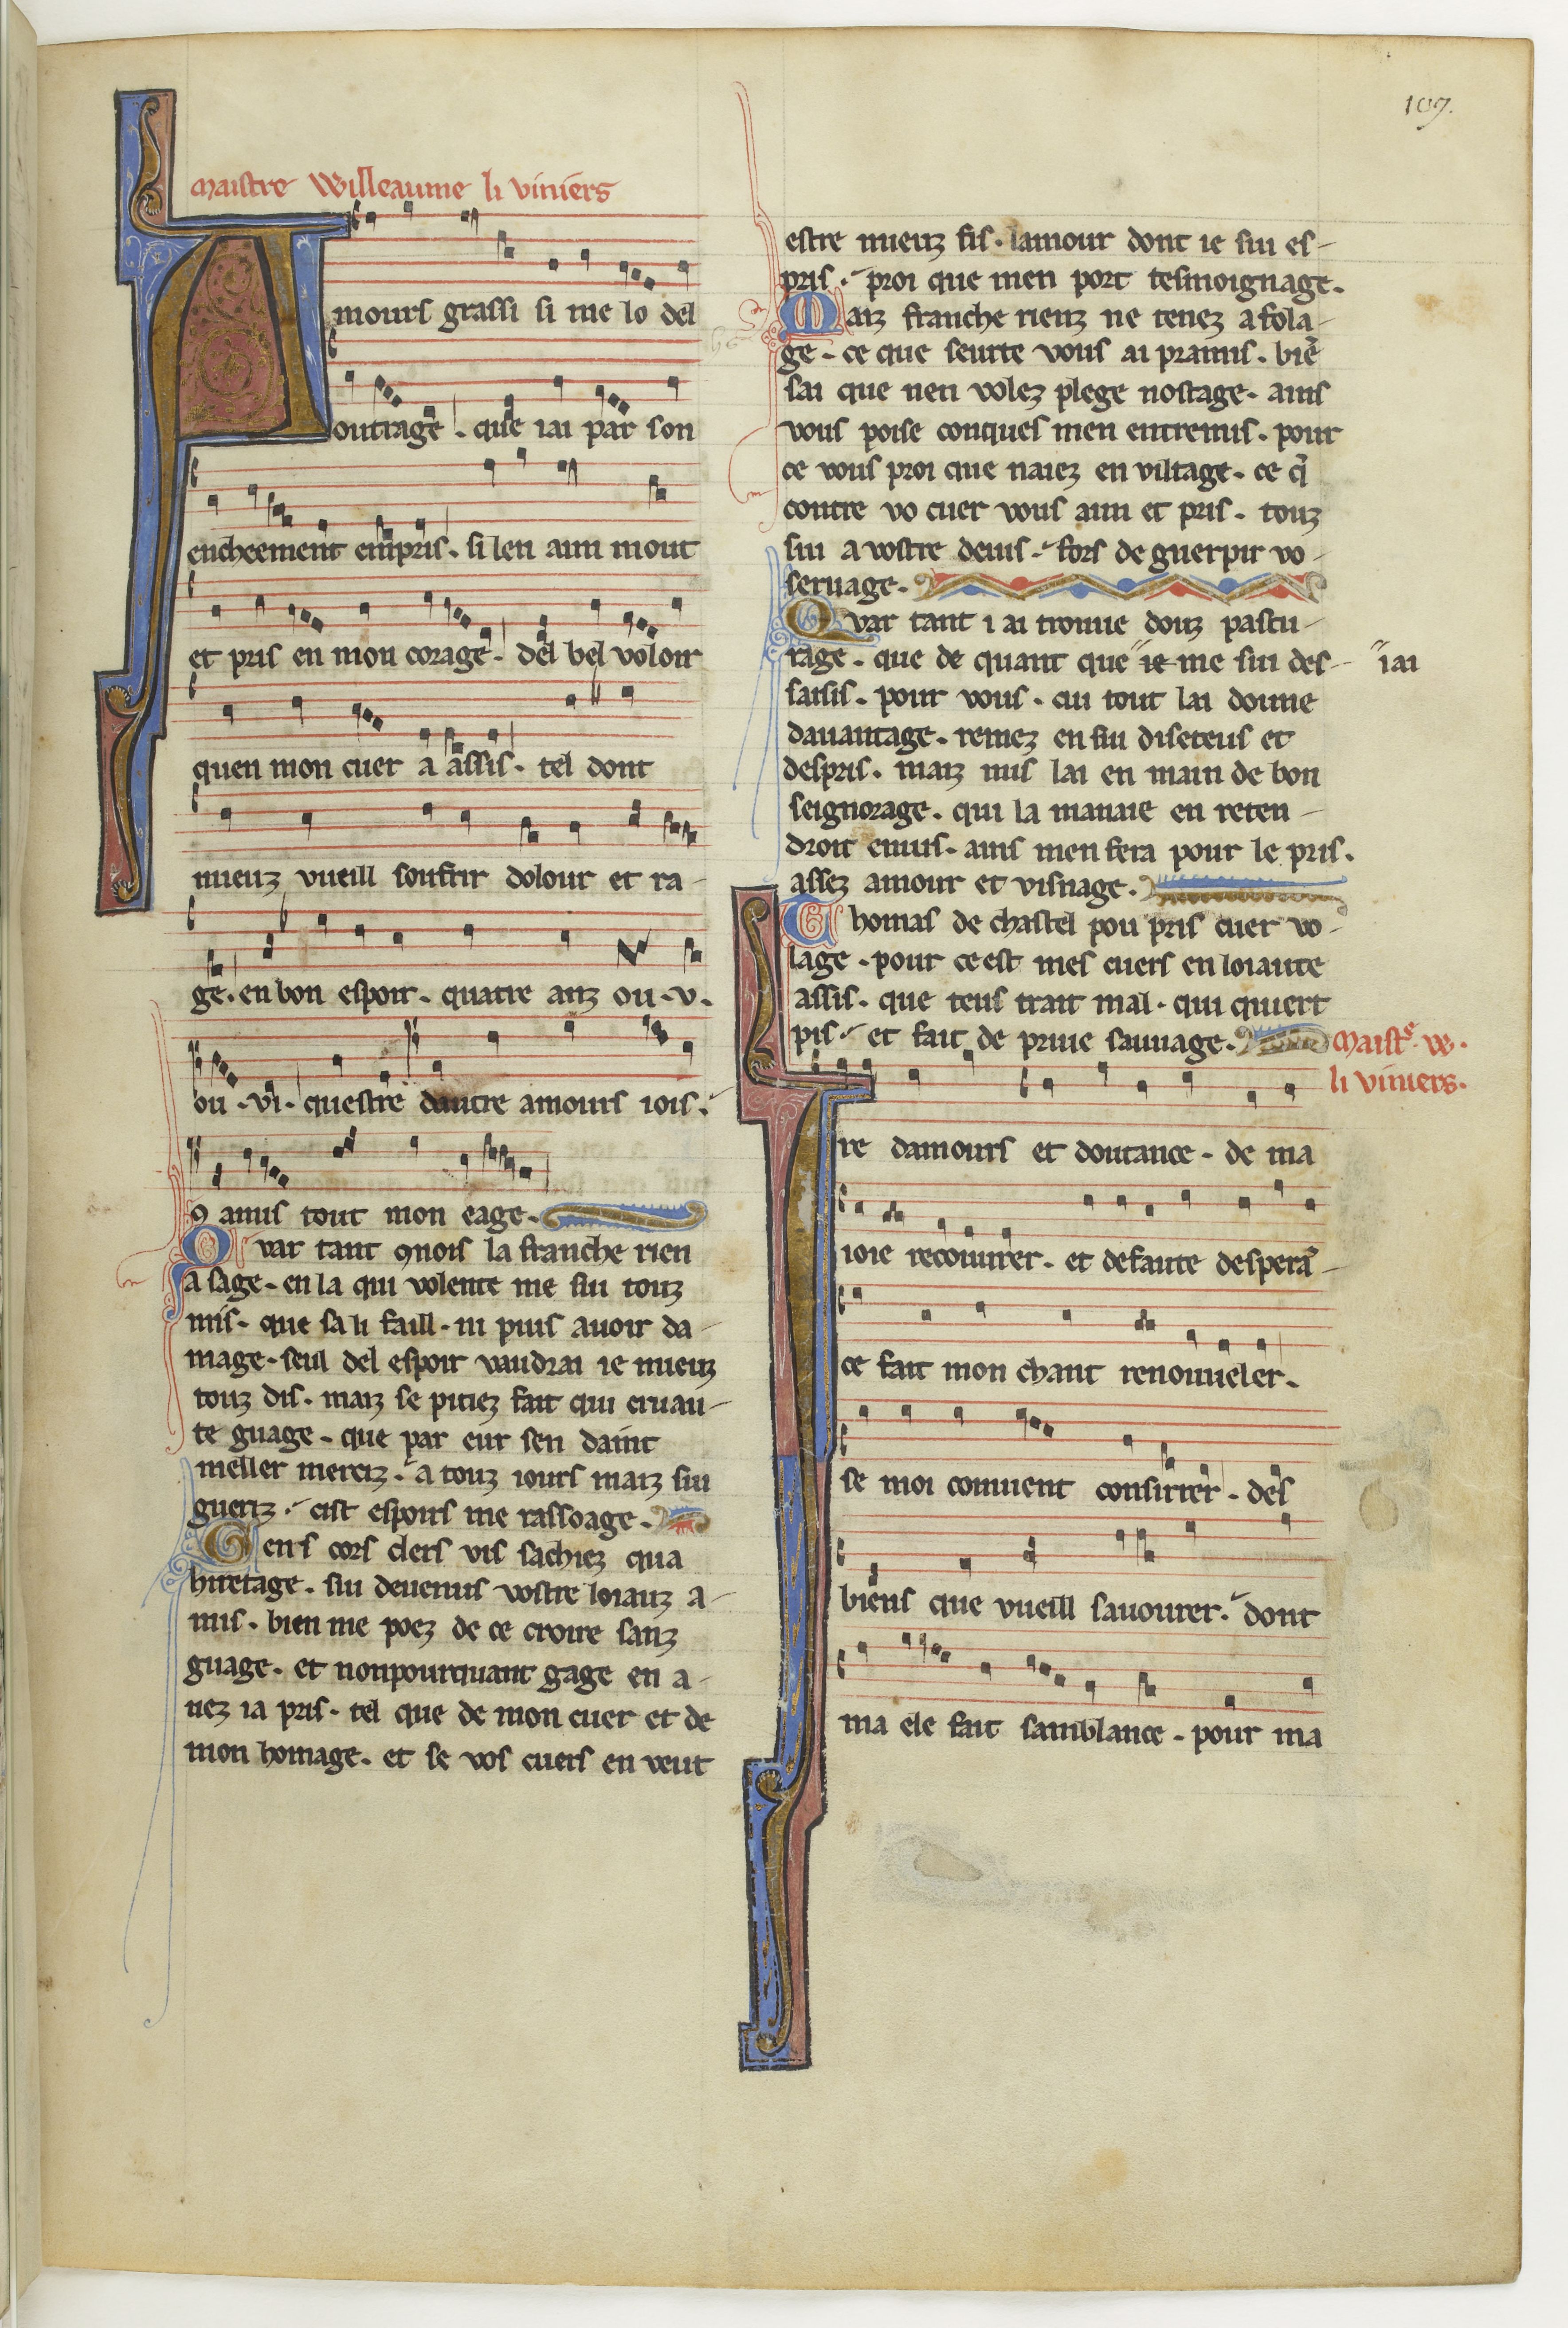 107.
Maistre Willeaume li viniers
Amours grassi si me lo del
outrage . que iai par son
encheement empris . si len aim mout
et pris en mon corage . del bel voloir
quen mon cuer a assis . tel dont
mieuz vueill soufrir dolour et ra-
ge . en bon espoir . quatre anz ou . v .
ou . vi . questre dautre amours iois .
9 amis tout mon eage .
Quar tant 9nois la franche rien
a sage . en la qui volente me sui touz
mis . que sa li faill . ni puis avoir da-
mage . seul del espoir vaudrai ie mieuz
touz dis . maiz se pitiez fait qui cruau-
te guage . que par eur sen daint
meller merciz . a touz iours maiz sui
gueriz . cist espoirs me rassoage .
Gens cors clers vis sachiez qua
hiretage . sui devenus vostre loiauz a-
mis . bien me poez de ce croire sanz
guage . et nonpourquant gage en a-
vez ia pris . tel que de mon cuer et de
mon homage . et se vos cuers en veut
estre mieuz fis . lamour dont ie sui es-
pris . proi que men port tesmoignage .
Maiz franche rienz ne tenez a fola-
ge . ce que seurte vous ai pramis . biē
sai que nen volez plege nostage . ains
vous poise conques men entremis . pour
ce vous proi que naiez en viltage . ce q̃
contre vo cuer vous aim et pris . touz
sui a vostre devis . fors de guerpir vo
servage .
Quar tant i ai trouve douz pastu-
rage . que de quant que ie me sui des- iai
saisis . pour vous . cui tout lai doune
davantage . remez en sui diseteus et
despris . maiz mis lai en main de bon
seignorage . qui la manaie en reten-
droit envis . ains men fera pour le pris .
assez amour et visnage .
Thomas de chastel pou pris cuer vo-
lage . pour ce est mes cuers en loiaute
assis . que teus trait mal . qui quiert
pis . et fait de prive sauvage . Maistᵉ . W .
li viniers .
Ire damours et doutance . de ma
ioie recouvrer . et defaute desperā-
ce fait mon chant renouveler .
se moi couvient consirrer . des
biens que vueill savourer . dont
ma ele fait samblance . pour ma